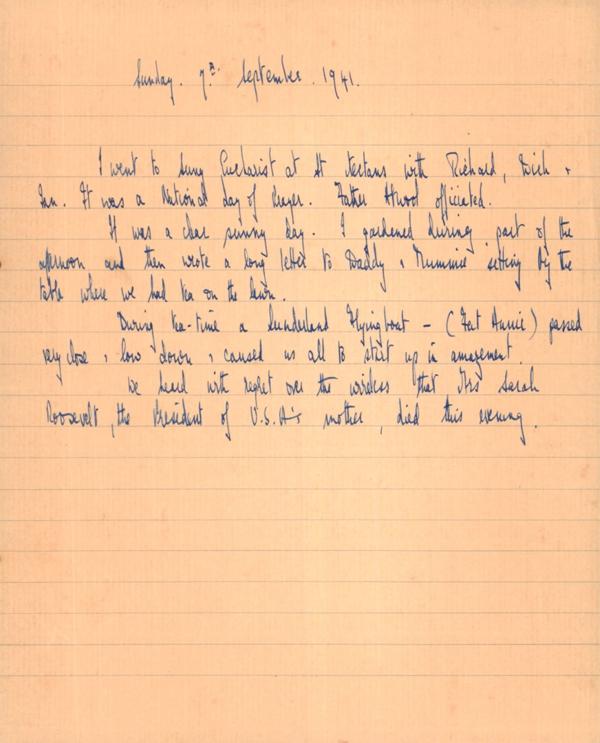 Sunday. 7th September. 1941.
I went to Sung Eucharist at St Nectans with Richard, Dick +
Ian. It was a National Day of Prayer. Father Atwool officiated.
It was a clear sunny day. I gardened during part of the
afternoon and then wrote a long letter to Daddy + Mummie sitting by the
table where we had tea on the lawn.
During tea-time a Sunderland Flyingboat - (Fat Annie) passed
very close + low down + caused us all to start up in amazement.
We heard with regret over the wireless that Mrs Sarah
Roosevelt, the President of U.S.A's mother, died this evening.